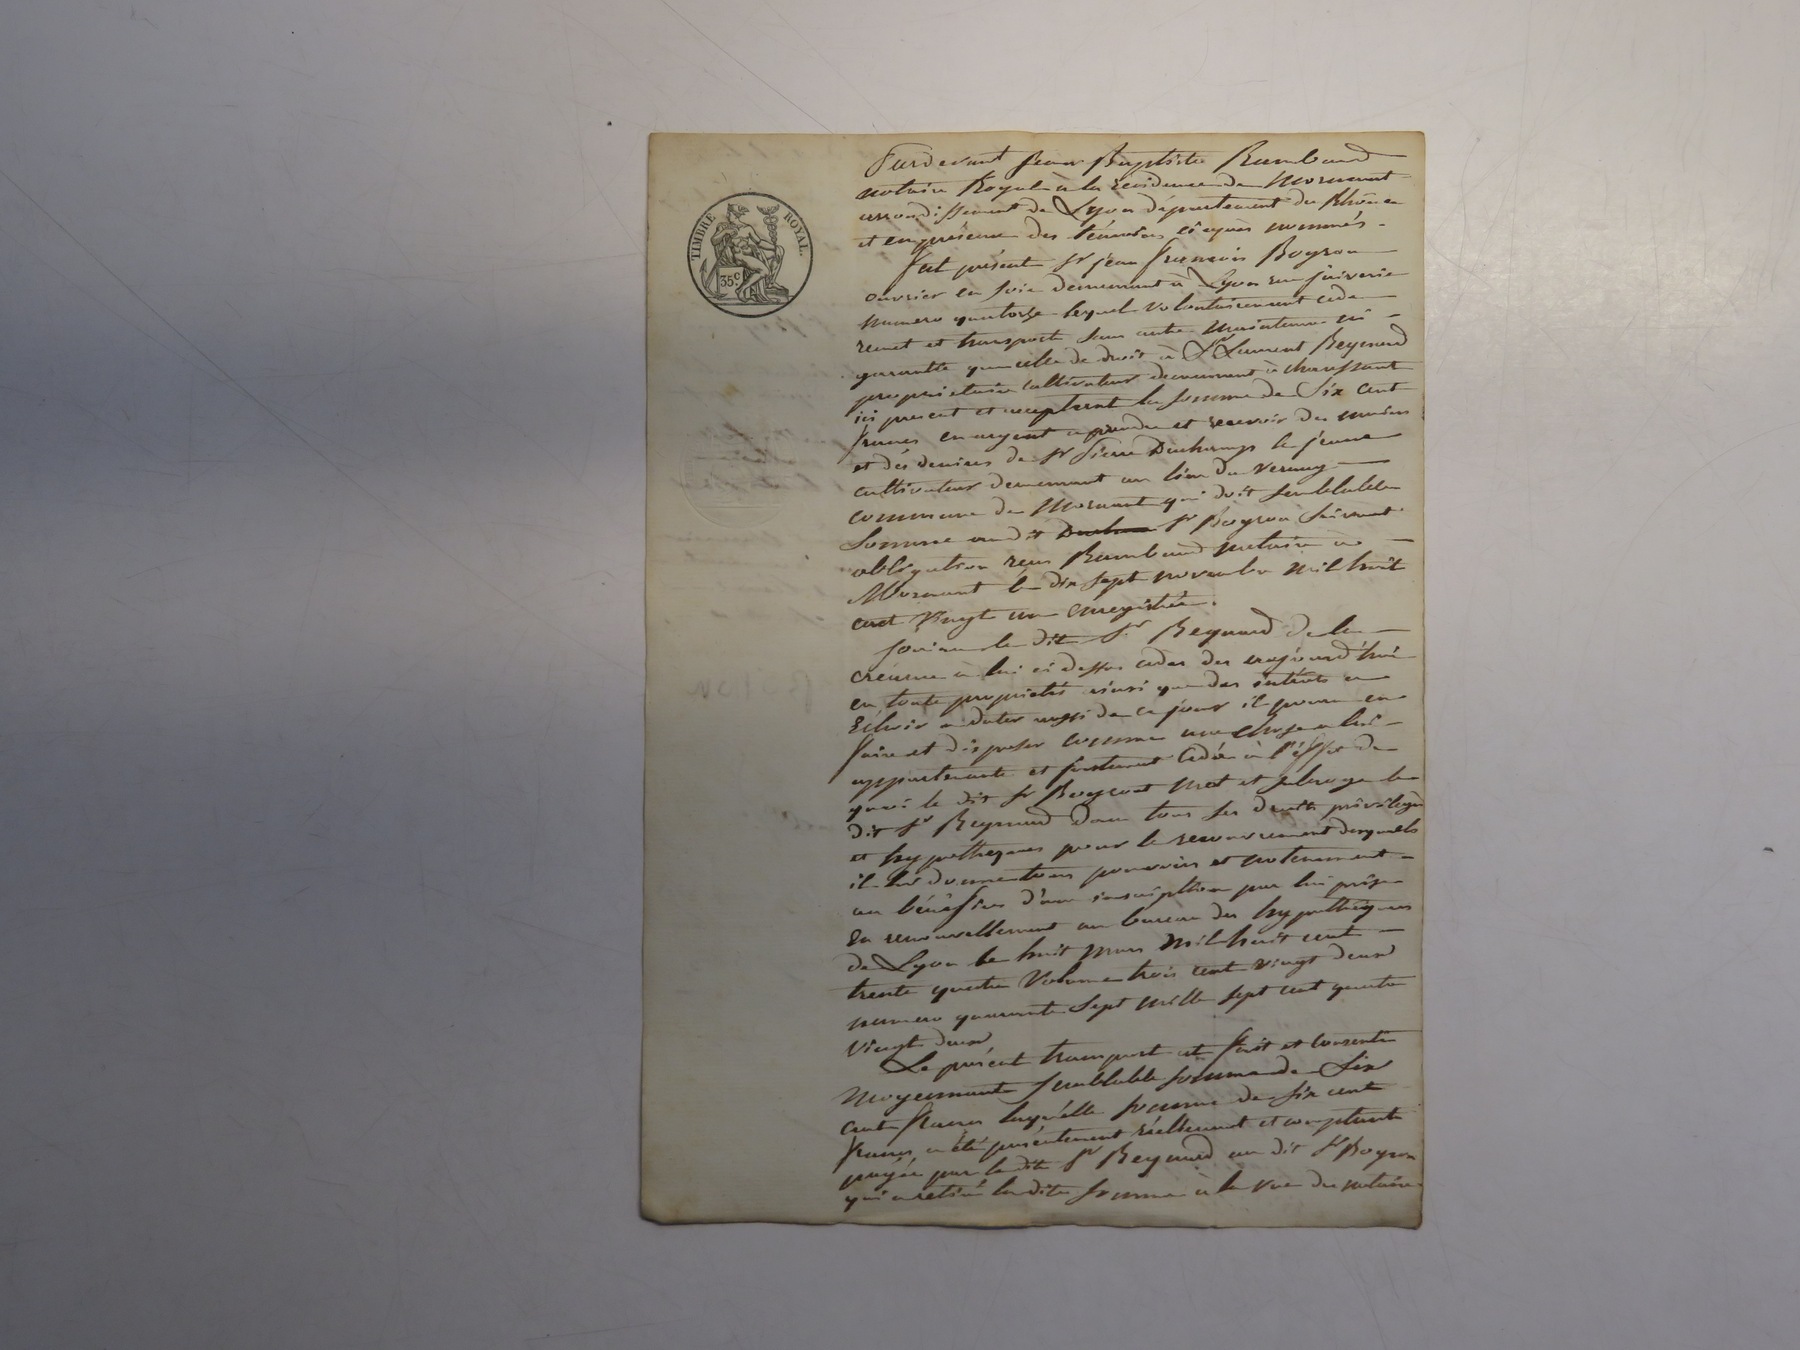 TIMBRE ROYAL.
35c.
Pardevant Jean Baptiste Rambaud
notaire Royal à la résidence de Mornant
arrondissement de Lyon département du Rhône
et en présence des témoins ci après nommés.
fut présent Sr jean françois Boyron
ouvrier en soie demeurant à Lyon rue juiverie
numero quatorze lequel volontairement cede
remet et transporte sans autre maintenue ni
garantie que celle de droit à Sr Laurent Reynard
propriétaire cultivateur demeurant à chaussant
ici present et acceptant la somme de Six cent
francs en argent a prendre et recevoir des mains
et des deniers de Sr Pierre Duchamp le jeune
cultivateur demeurant au lieu du
commune de Mornant qui doit semblable
somme au dit Sr Boyron suivant
obligation reçu Rambaud notaire a
Mornant le dix sept novembre mil huit
cent vingt un enregistrée.
jouira le dit Sr Reynard de la
créance a lui ci dessus cédée des aujourd'hui
en toute propriété ainsi que des intérêts a
Echoir a dater aussi de ce jour il pourra en
faire et disposer comme une chose a lui
appartenante et justement cédée à l'effet de
quoi le dit Sr Boyron met et subroge le
dit Sr Reynard dans tous ses droits privilèges
et hypothèques pour le recouvrement desquels
il lui donne tous pouvoirs et notamment
au bénéfice d'une inscription par lui prise
En renouvellement au bureau des hypothèques
de Lyon le huit mars mil huit cent
trente quatre Volume trois cent vingt deux
numero quarante sept mille sept cent quatre
vingt deux
Le présent transport est fait et consenti
moyennant semblable somme de Six
cent francs laquelle somme de six cent
francs a été présentement réellement et comptant
payée par le dit Sr Reynard au dit Sr Boyron
qui a retiré la dite somme à la vue du notaire